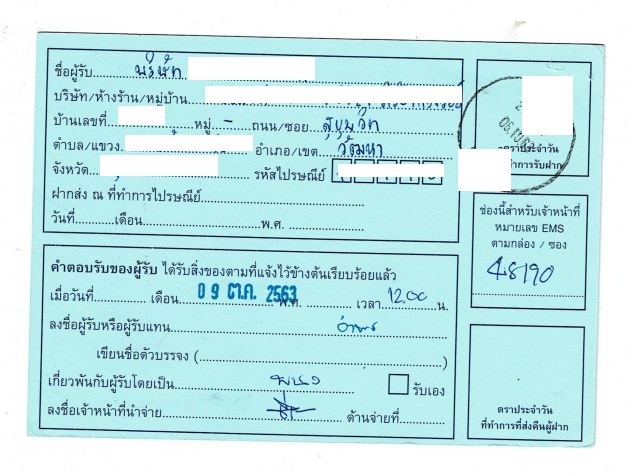 ชื่อผู้รับ บริษัท
บริษัท/ห้างร้าน/หมู่บ้าน
บ้านเลขที่ หมู่ - ถนน/ซอย สุขุมวิท
ตำบล/แขวง อำเภอ/เขต วัฒนา
จังหวัด รหัสไปรษณีย์
ฝากส่ง ณ ที่ทำการไปรษณีย์
วันที่ เดือน พ.ศ.
ตราประจำวัน
ที่ทำการรับฝาก
ช่องนี้สำหรับเจ้าหน้าที่
หมายเลข EMS
ตามกล่อง / ซอง
48190
คำตอบรับของผู้รับ ได้รับสิ่งของตามที่แจ้งไว้ข้างต้นเรียบร้อยแล้ว
เมื่อวันที่ เดือน 09 ต.ค. 2563 พ.ศ. เวลา 12.00 น.
ลงชื่อผู้รับหรือผู้รับแทน
เขียนชื่อตัวบรรจง ( )
เกี่ยวพันกับผู้รับโดยเป็น รับเอง
ลงชื่อเจ้าหน้าที่นำจ่าย ด้านจ่ายที่
ตราประจำวัน
ที่ทำการที่ส่งคืนผู้ฝาก